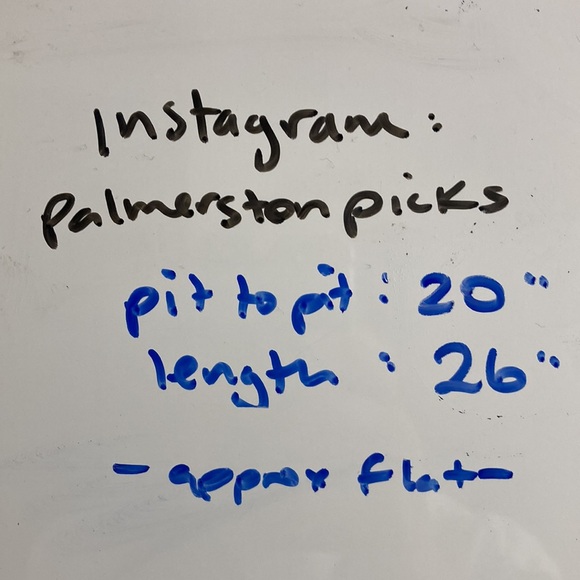 Instagram:
palmerston picks
pit to pit: 20"
length: 26"
- approx flat -